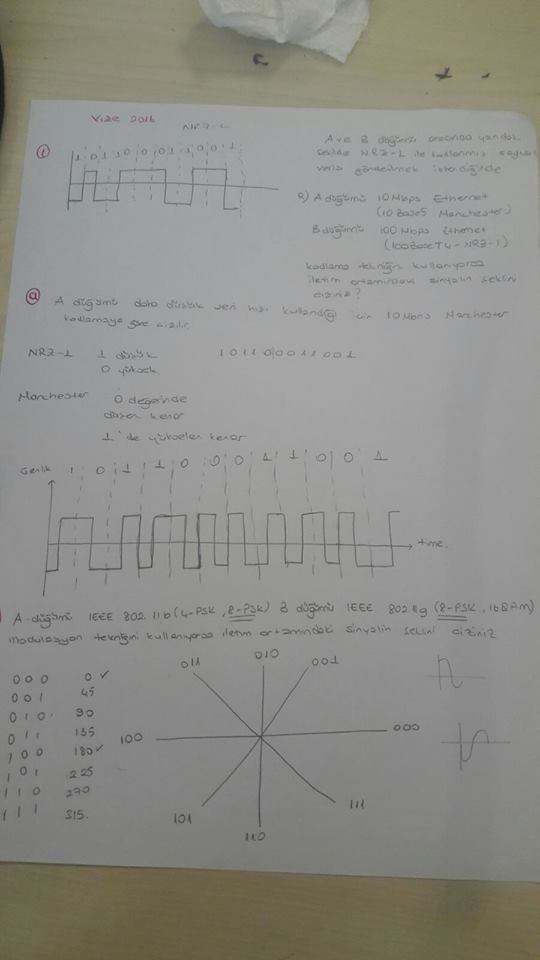 Vize 2016
NRZ-L
①
1 0 1 1 0 0 0 1 1 0 0 1
A ve B düğümü arasında yandaki
şekilde NRZ-L ile kodlanmış sayısal
verisi gönderilmek istendiğinde
a) A düğümü 10 Mbps Ethernet
(10Base5 Manchester)
B düğümü 100 Mbps Ethernet
(100BaseT4-NRZ-I)
kodlama tekniğini kullanıyorsa
iletim ortamındaki sinyalin şeklini
çiziniz?
ⓐ A düğümü daha düşük veri hızı kullandığı için 10 Mbps Manchester
kodlamaya göre çizilir.
NRZ-L 1 düşük 1 0 1 1 0 0 0 1 1 0 0 1
0 yüksek
Manchester 0 değerinde
düşen kenar
1'de yükselen kenar
Genlik 1 0 1 1 0 0 0 1 1 0 0 1
time.
A düğümü IEEE 802.11b (4-PSK, 8-PSK) B düğümü IEEE 802.11g (8-PSK, 16QAM)
modulasyon tekniğini kullanıyorsa iletim ortamındaki sinyalin şeklini çiziniz
010
011 001
000 0 ✓
001 45
010 90
011 135
100 000
100 180 ✓
101 225
110 270
111 315.
101 111
110